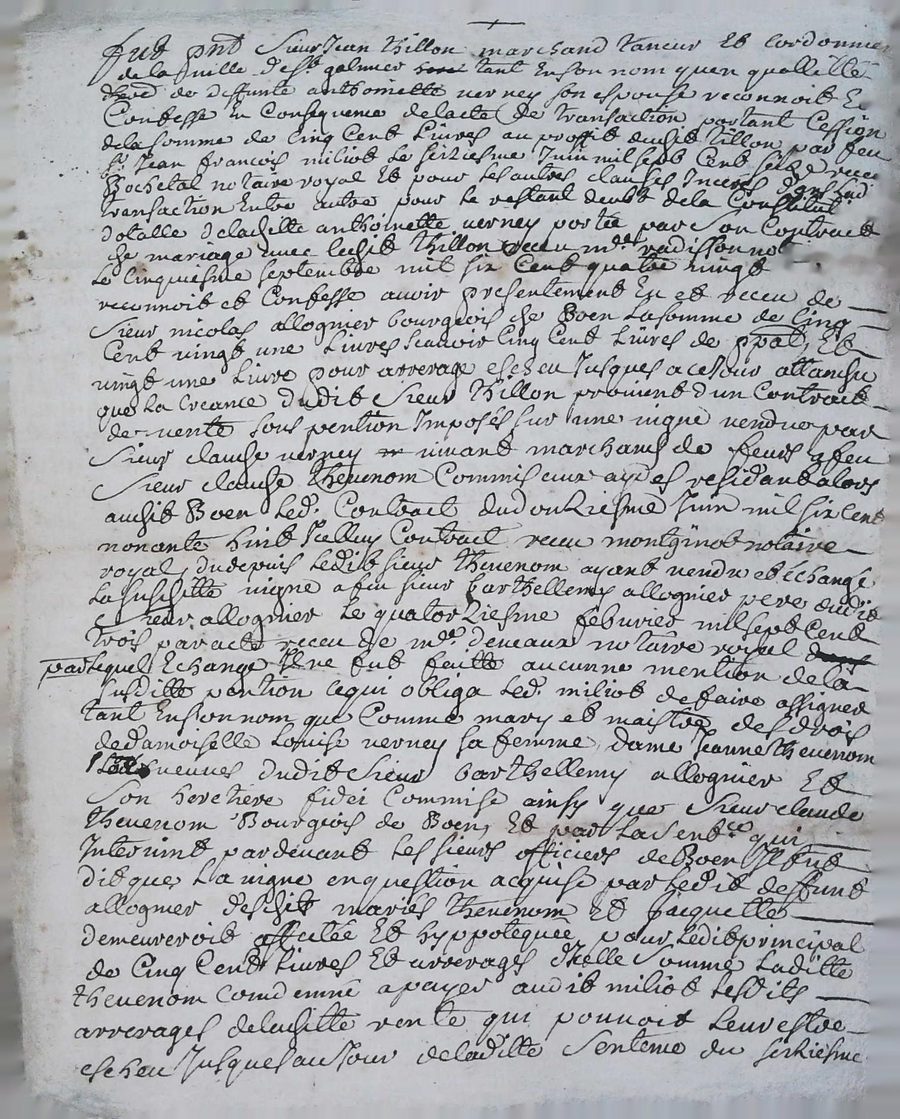 fut pnt Sieur Jean thillon marchand taneur Et Cordonnier
de la ville de st galmier tant En son nom quen quallitté
de deffunte anthoinette verney son espouse reconnoit Et
Confesse En Consequence delacte de transaction portant Cession
dela somme de Cinq Cent Livres au proffit dudit tillon par feu
sr Jean francois miliot Le seiziesme Juin mil sept Cent seize receu
Rochetal notaire royal Et pour Les autres clauses
transaction Entre autre pour Le restant deub de la Constitution
dotalle deladitte anthoinette verney portée par son Contract
de mariage avec Ledit thillon receu me radisson not
Le Cinquiesme septembre mil six Cent quatre vingt
reconnoit et Confesse avoir presentement Eu et receu de
Sieur nicolas allognier bourgeois de Boen La somme de Cinq
Cent vingt une Livres scavoir Cinq Cent Livres de ppal, Et
vingt une Livre pour arrerage escheu Jusques a ce Jour attandu
que La Creance dudit Sieur thillon provient d'un Contract
de vente sous pention Imposés sur une vigne vendue par
Sieur claude verney vivant marchand de feurs a feu
Sieur claude thevenom Commis aux aydes residant alors
audit Boen Led. Contract du donziesme Juin mil six Cent
nonante huit Icelluy Contract receu montginot notaire
royal, du depuis Ledit sieur thevenom ayant vendu et Echangé
La susditte vigne a feu sieur barthellemy allognier pere dudit
Sieur allognier Le quatorziesme febvrier mil sept Cent
trois par acte receu de me deveaux notaire royal
par Lequel Echange Il ne fut faitte aucunne mention dela
susditte pantion cequi obliga Led. miliot de faire assigner
tant En son nom que Comme mary et maistre des drois
de damoiselle Louise verney sa femme, dame Jeanne thevenom
veuves dudit Sieur barthellemy allognier Et
Son heretiere fidei Commise ainsy que Sieur claude
thevenom Bourgeois de Boen, Et par La sentce qui
Intervint pardevant Les sieurs officiers de Boen Il fut
dit que La vigne en question acquise par Ledit deffunt
allognier desdit mariés thevenom Et Jacquette
demeureroit affectée Et hyppotequée pour Ledit principal
de Cinq Cent Livres Et arrerages dicelle Somme Laditte
thevenom Condemné a payer audit miliot Lesdits
arrerages deladitte rente qui pouvoit Leur estre
escheu Jusques au Jour deladitte Sentence du seiziesme